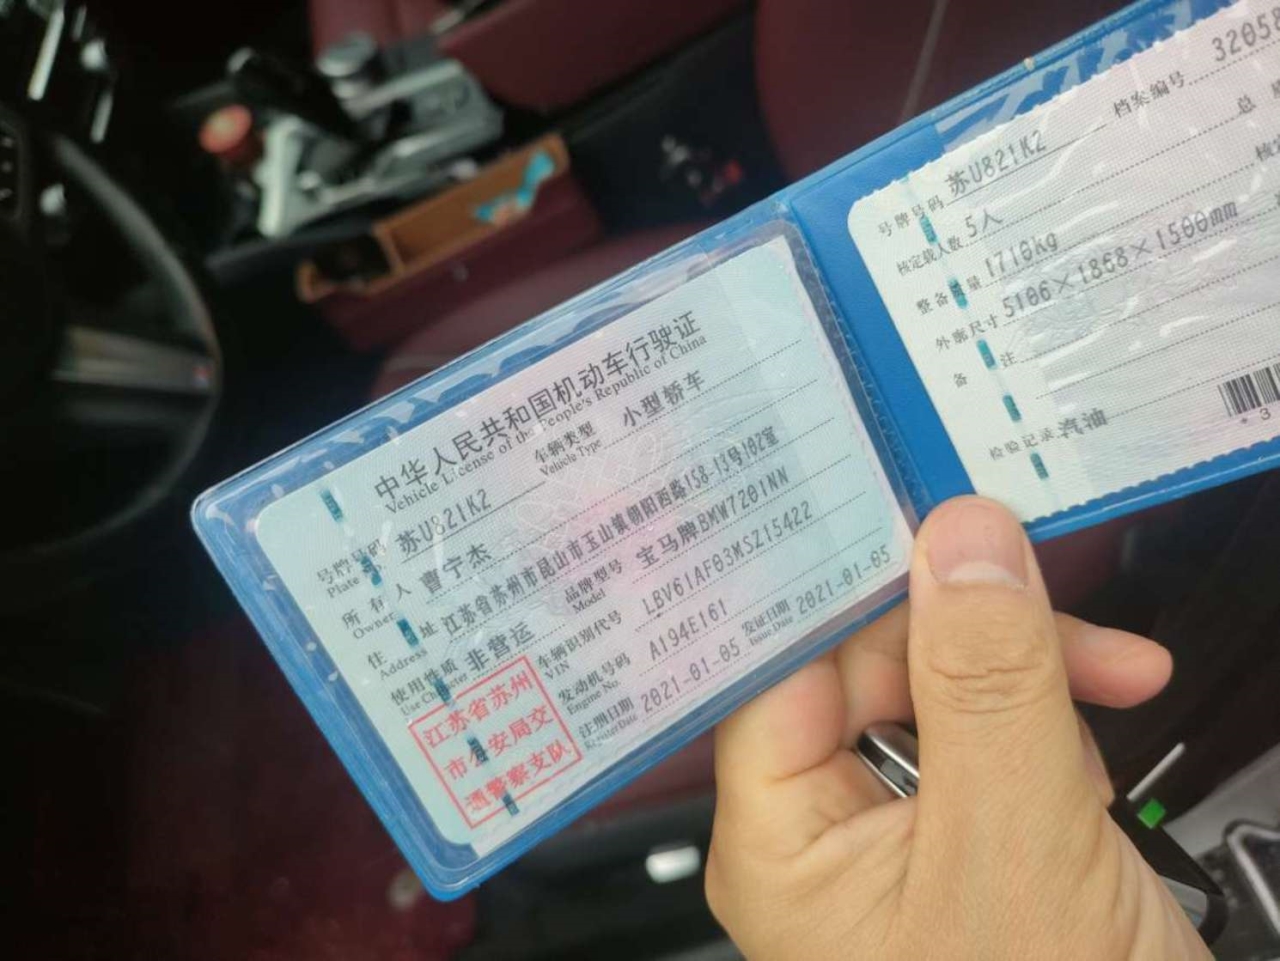 中华人民共和国机动车行驶证
Vehicle License of the People's Republic of China
号牌号码 苏U821K2 车辆类型 小型轿车
Plate No. Vehicle Type
所有人 曹宁杰
Owner
住址 江苏省苏州市昆山市玉山镇朝阳西路158-13号102室
Address
使用性质 非营运 品牌型号 宝马牌BMW7201NN
Use Character Model
车辆识别代号 LBV61AF03MSZ15422
VIN
发动机号码 A194E161
Engine No.
注册日期 2021-01-05 发证日期 2021-01-05
Register Date Issue Date
江苏省苏州
市公安局交
通警察支队
号牌号码 苏U821K2 档案编号 32058
核定载人数 5人 总
整备质量 1710kg 核定
外廓尺寸 5106×1868×1500mm
备注
检验记录 汽油